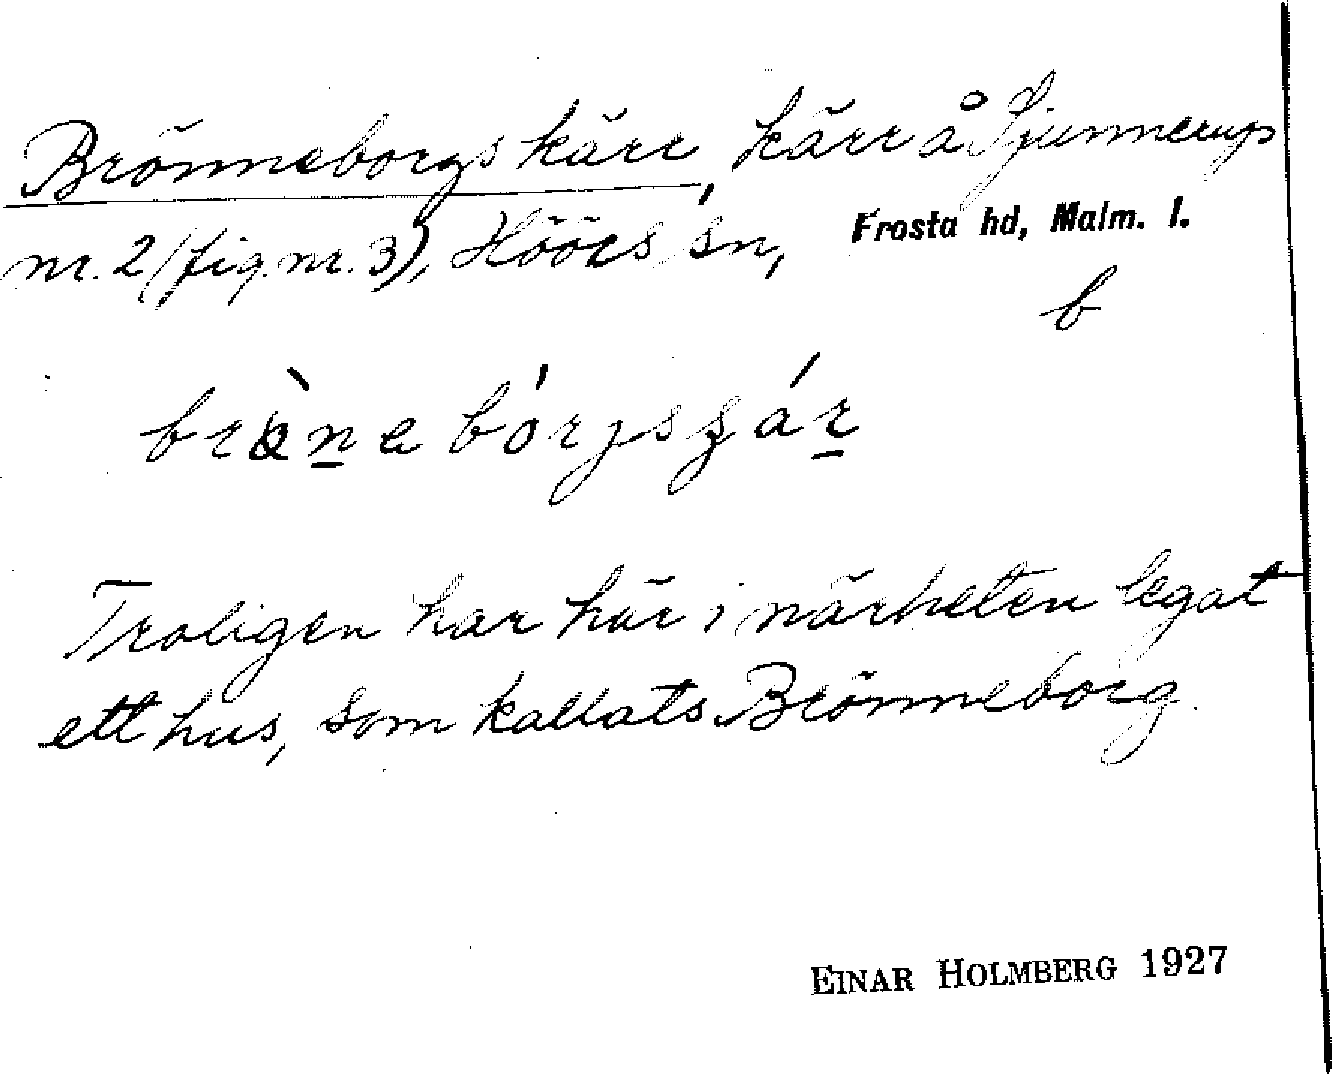 Brönneborgskärr, kärr å Sjunnerup
nr. 2 (fig. nr. 3), Höörs sn, Frosta hd, Malm. l.
b
Troligen har här i närheten legat
ett hus, som kallats Brönneborg.
EINAR HOLMBERG 1927